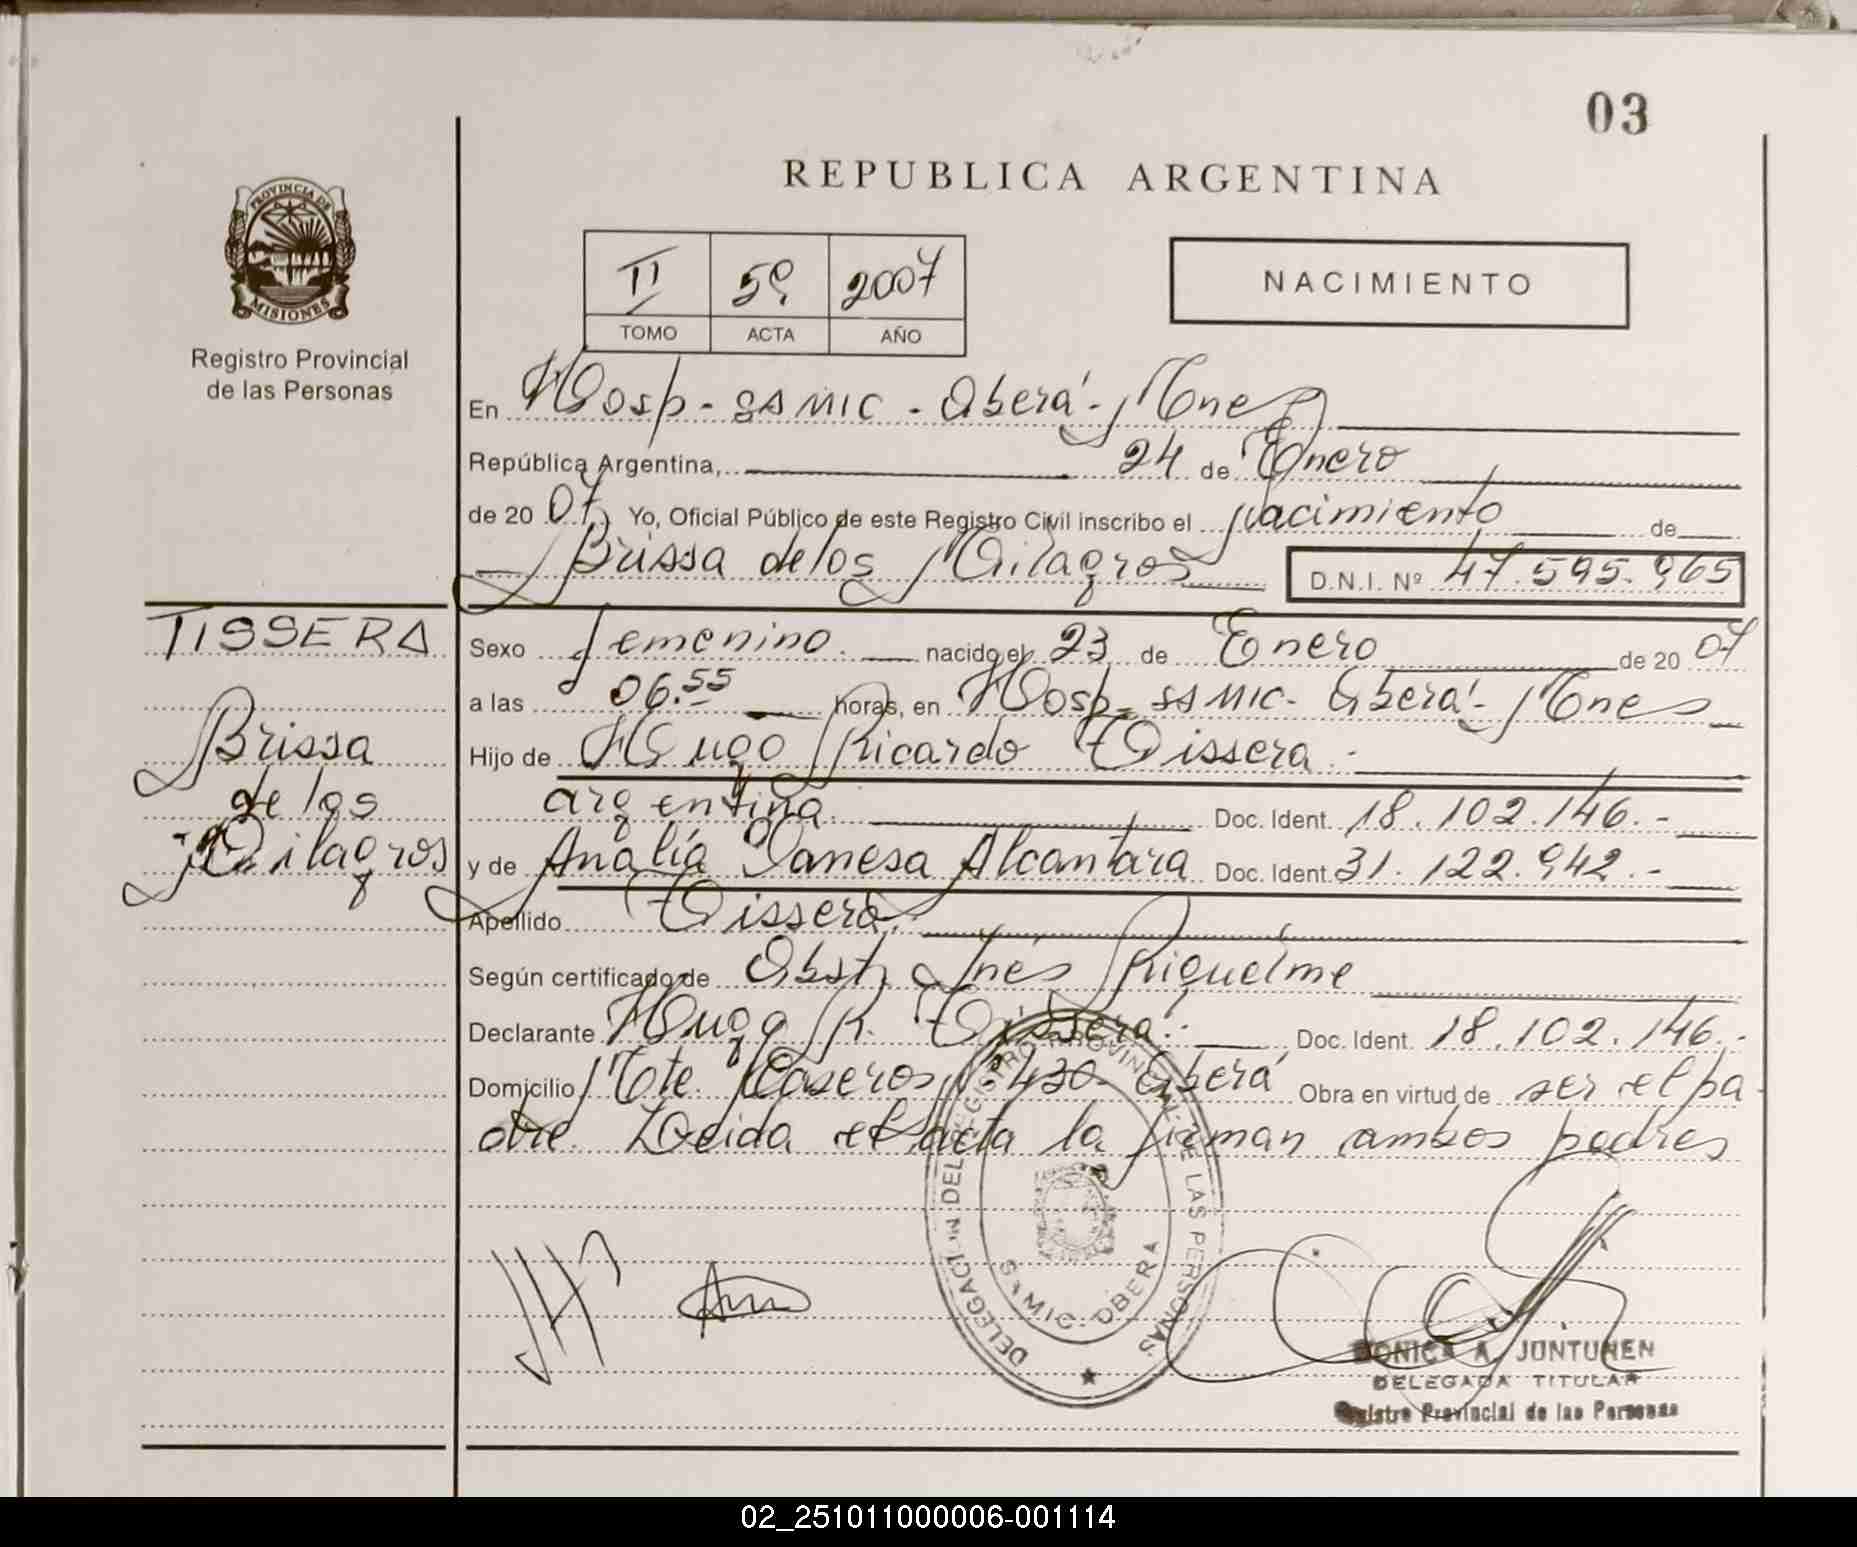 03
REPUBLICA ARGENTINA
PROVINCIA DE
MISIONES
Registro Provincial
de las Personas
II 59 2007
TOMO ACTA AÑO
NACIMIENTO
En Hosp - SAMIC - Oberá - Mnes
República Argentina, 24 de Enero
de 20 07, Yo, Oficial Público de este Registro Civil inscribo el Nacimiento de
Brissa de los Milagros D.N.I. Nº 47.595.965
TISSERA
Brissa
de los
Milagros
Sexo femenino. nacido el 23 de Enero de 20 07
a las 06.55 horas, en Hosp - SAMIC - Oberá - Mnes
Hijo de Hugo Ricardo Tissera.-
argentina. Doc. Ident. 18.102.146.-
y de Analía Vanesa Alcantara Doc. Ident. 31.122.942.-
Apellido Tissera.
Según certificado de Obst. Inés Riquelme
Declarante Hugo R. Tissera.- Doc. Ident. 18.102.146.-
Domicilio Mte. Caseros Nº 430 Oberá Obra en virtud de ser el pa
dre. Leida el acta la firman ambos padres
DELEGACION DEL REGISTRO PROVINCIAL DE LAS PERSONAS
SAMIC - OBERA
A. JUNTUNEN
DELEGADA TITULAR
Registro Provincial de las Personas
02_251011000006-001114